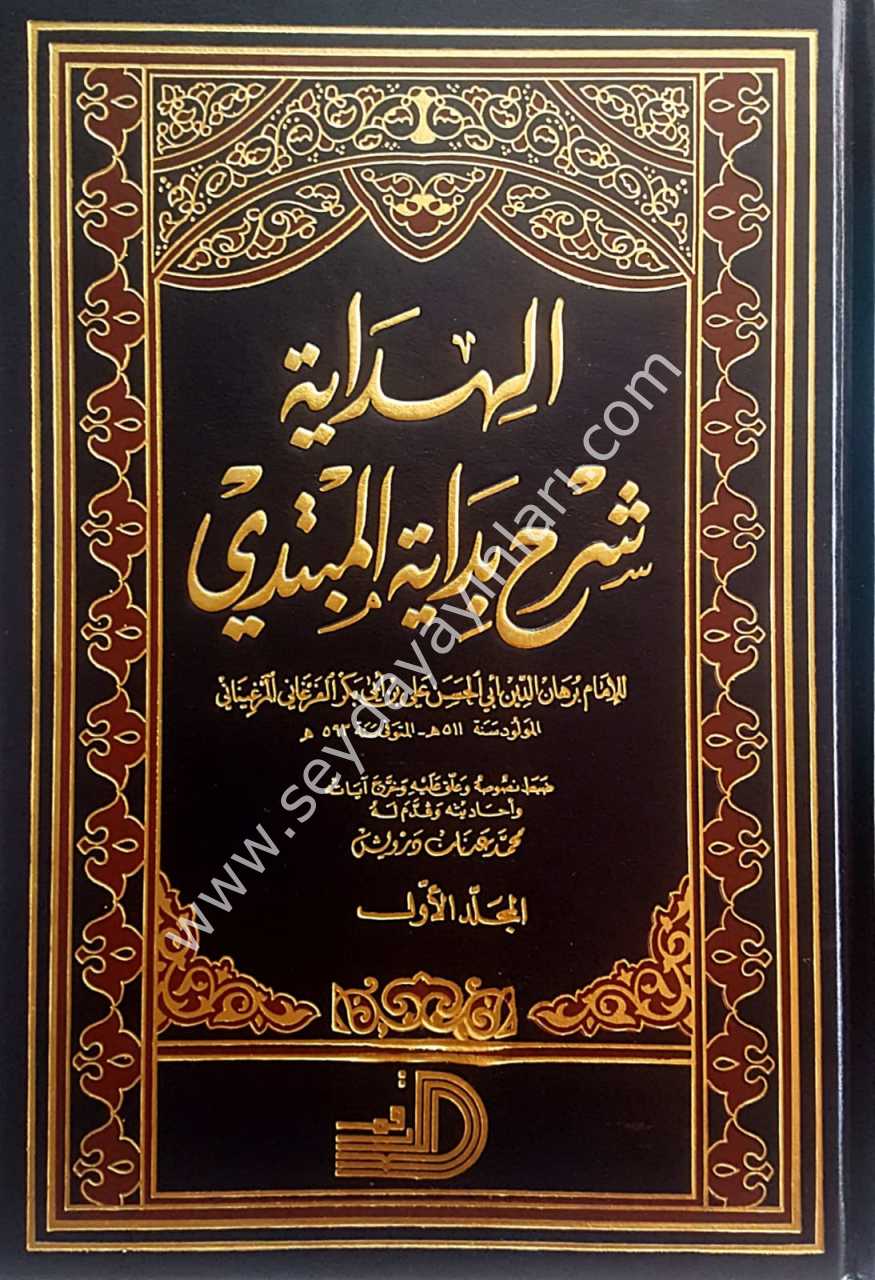 الهداية
شرح بداية المبتدي
للإمام برهان الدين أبي الحسن علي بن أبي بكر الفرغاني المرغيناني
المولود سنة ٥١١ هـ - المتوفى سنة ٥٩٣ هـ
ضبط نصوصه وعلق عليه وخرج آياته
وأحاديثه وقدم له
محمد عدنان درويش
المجلد الأول
www.seydayayinlari.com